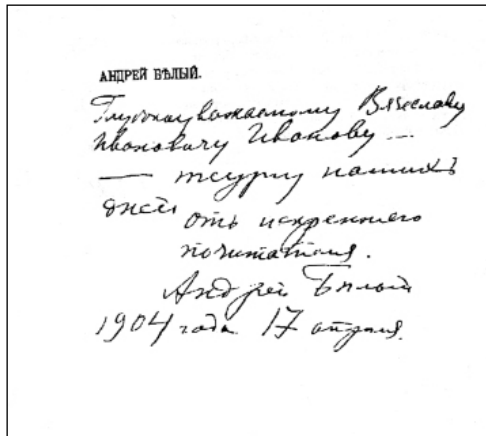 АНДРЕЙ БѢЛЫЙ.
Глубокоуважаемому Вячеславу
Ивановичу Иванову —
— теургу нашихъ
дней отъ искреннего
почитателя.
Андрей Бѣлый
1904 года 17 апреля.